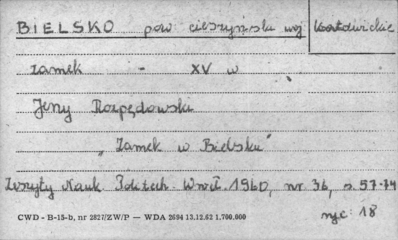 BIELSKO pow cieszyński woj Katowickie
zamek - XV w
Jerzy Rozpędowski
„Zamek w Bielsku"
Zeszyty Nauk. Politech. Wrocł. 1960, nr. 36, s. 57-74
CWD - B-15-b, nr 2827/ZW/P — WDA 2694 13.12.62 1.700.000
ryc. 18